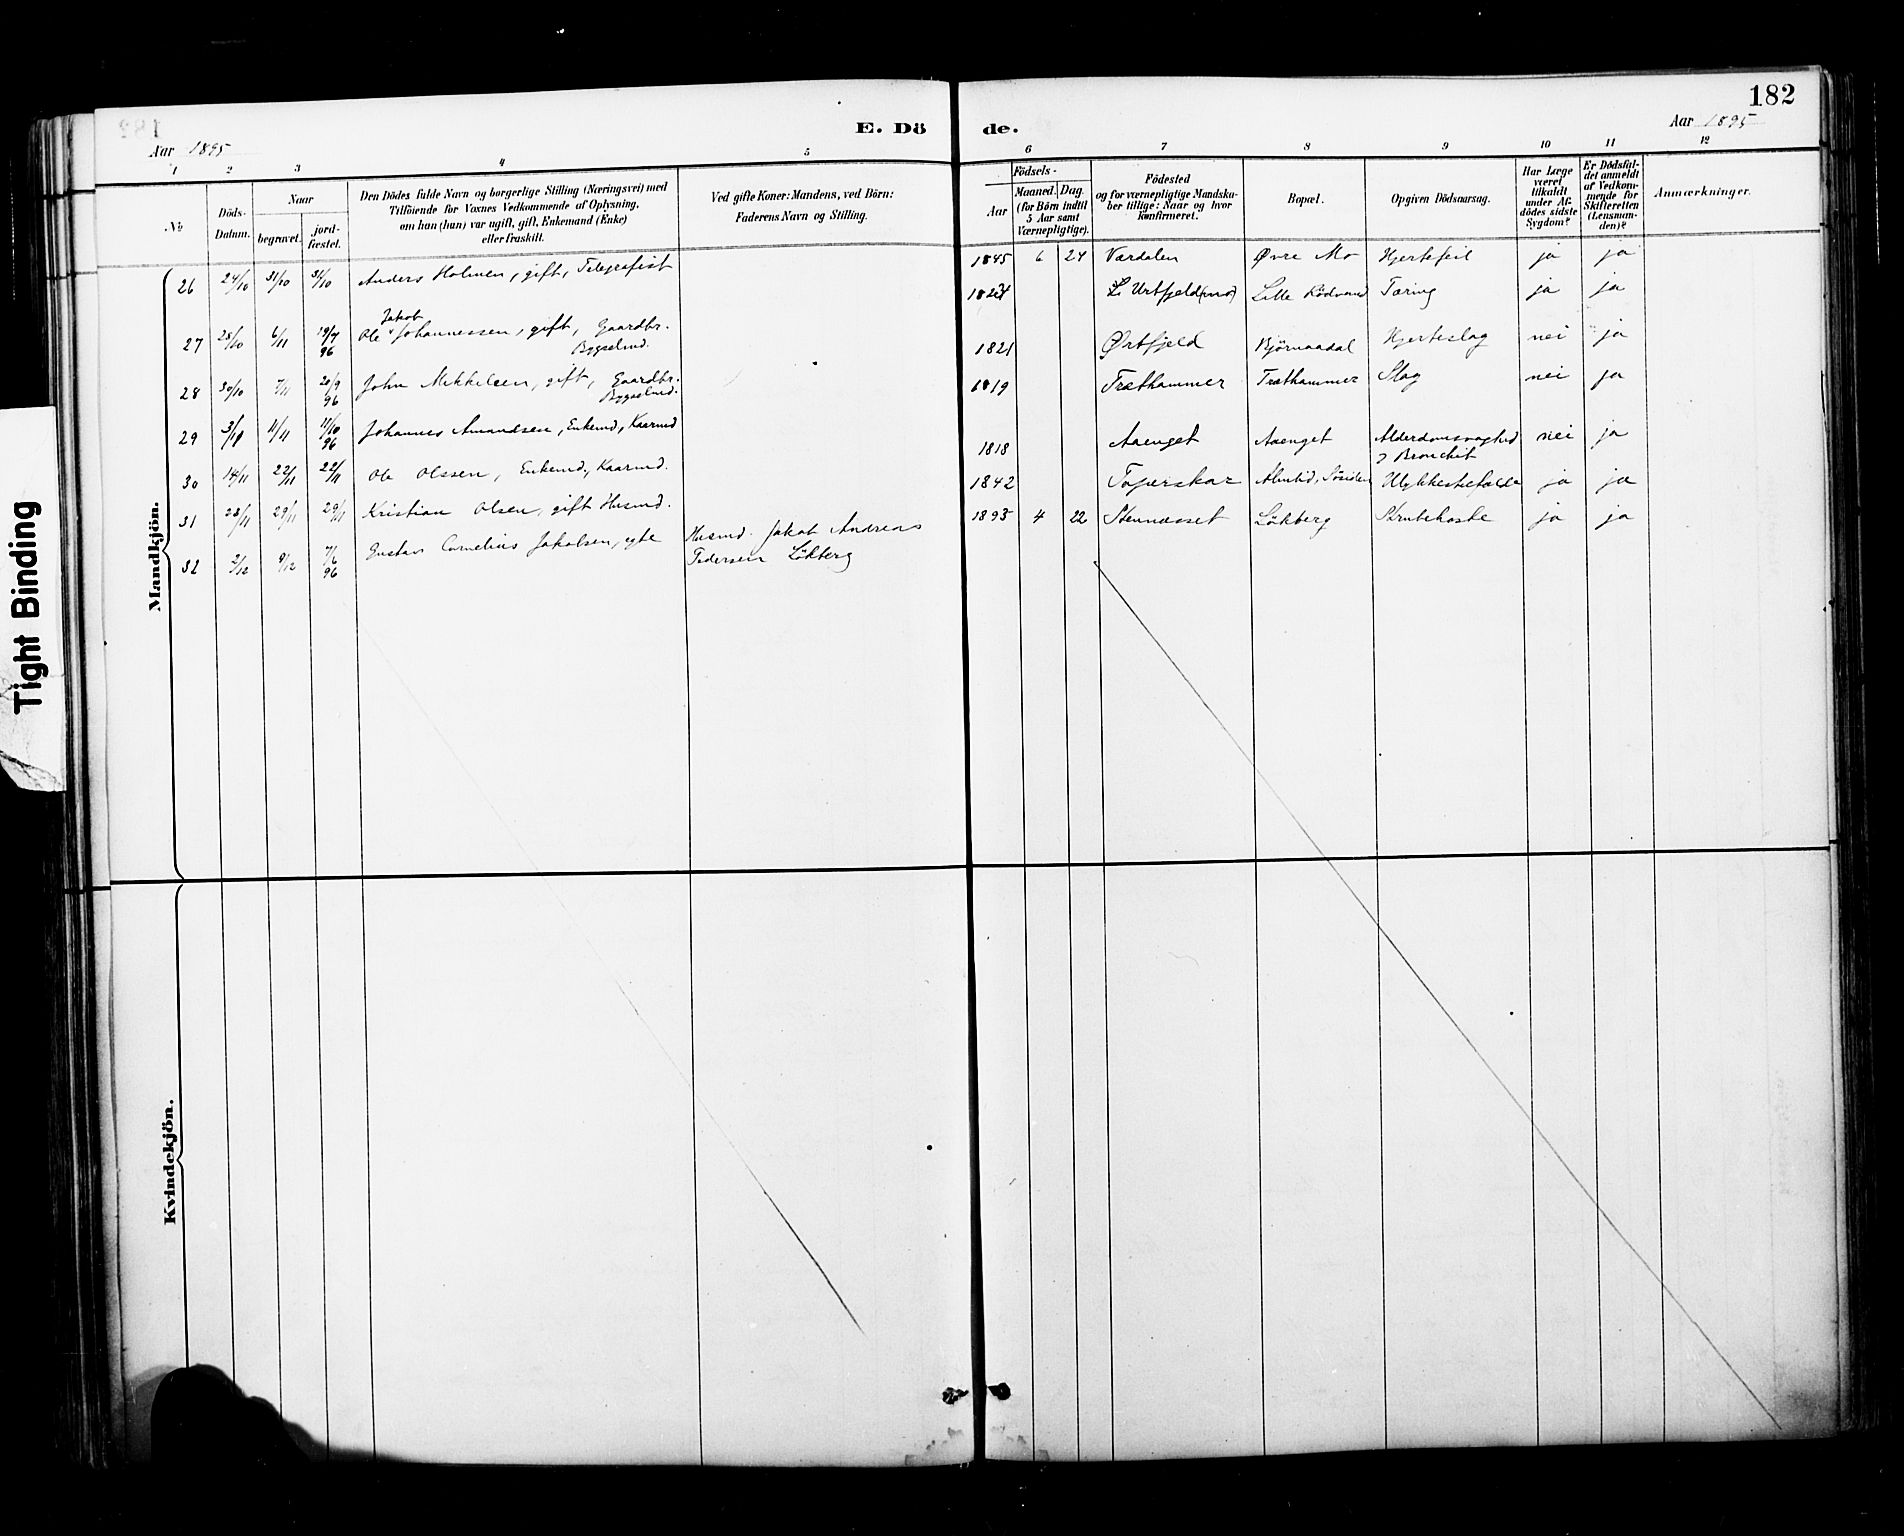 182
E. Dö de.
Aar 1895
Aar 1895
1 2 3 4 5 6 7 8 9 10 11 12
№
Döds-Datum.
Naar
begravet.
jord-fæstet.
Den Dödes fulde Navn og borgerlige Stilling (Næringsvei) med
Tilföiende for Voxnes Vedkommende af Oplysning,
om han (hun) var ugift, gift, Enkemand (Enke)
eller fraskilt.
Ved gifte Koner: Mandens, ved Börn:
Faderens Navn og Stilling.
Födsels-
Aar
Maaned.
Dag.
(for Börn indtil
5 Aar samt
Værnepligtige).
Födested
og for værnepligtige Mandska-
ber tillige: Naar og hvor
konfirmeret.
Bopæl.
Opgiven Dödsaarsag.
Har Læge
været
tilkaldt
under Af-
dödes sidste
Sygdom?
Er Dödsfal-
det anmeldt
af Vedkom-
mende for
Skifteretten
(Lensman-
den)?
Anmærkninger.
Mandkjön.
26 24/10 31/10 31/10 Anders Holmen, gift, Telegrafist 1845 6 24 Værdalen Øvre Mo Hjertefeil ja ja
27 28/10 6/11 19/7 96 Ole Jakob Johannessen, gift, Gaardbr. Bygselmd. L. Urtfjeld (mo) Lille Rödvand Tæring ja ja
28 30/10 7/11 20/9 96 John Mikkelsen, gift, Gaardbr. Bygselmd. 1821 Ørtfjeld Bjørnaadal Hjerteslag nei ja
29 3/11 11/11 11/10 96 Johannes Amundsen, Enkemd, Kaarmd 1819 Træthammer Træthammer Slag nei ja
30 14/11 22/11 22/11 Ole Olssen, Enkemd, Kaarmd. 1818 Aaenget Aaenget Alderdomssvaghed & Bronchit nei ja
31 23/11 29/11 29/11 Kristian Olsen, gift Husmd. 1842 Ulykkestilfælde ja ja
32 2/12 9/12 7/6 96 Gustav Cornelius Jakobsen, egte Husmd. Jakob Andreas Pedersen Løkberg 1895 4 22 Stennesset Løkberg Strubehoste ja ja
Kvindekjön.
Tight Binding